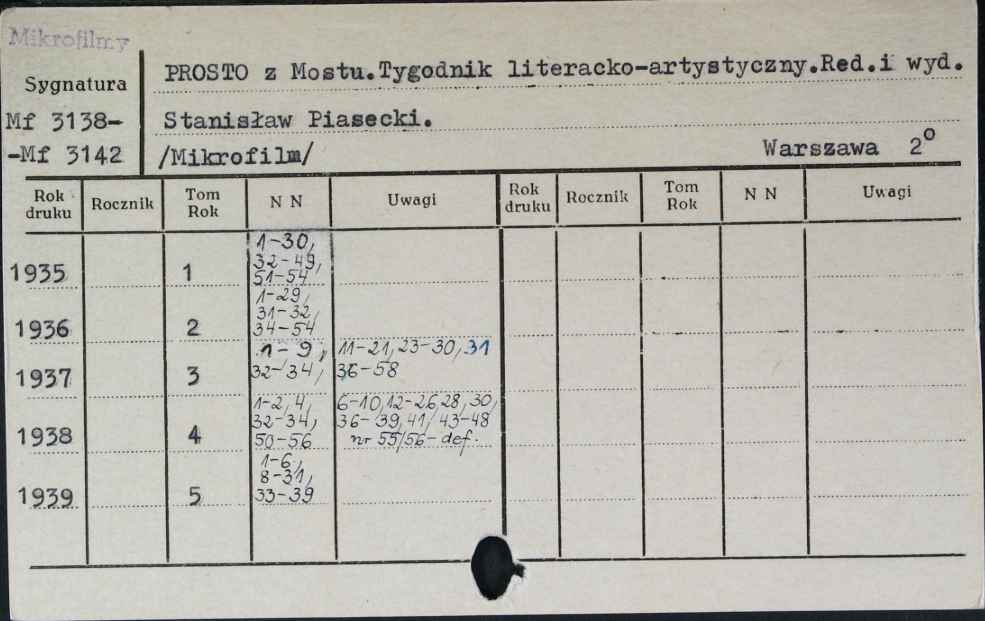 Mikrofilmy
Sygnatura
Mf 3138-
-Mf 3142
PROSTO z Mostu.Tygodnik literacko-artystyczny.Red.i wyd.
Stanisław Piasecki.
/Mikrofilm/ Warszawa 2°
Rok druku Rocznik Tom Rok N N Uwagi Rok druku Rocznik Tom Rok N N Uwagi
1-30,
32-49,
1935 1 51-54
1-29,
31-32,
1936 2 34-54
1-9, 11-21, 23-30, 31
1937 3 32-34, 36-58
1-2, 4, 6-10, 12-26, 28, 30,
32-34, 36-39, 41, 43-48
1938 4 50-56 nr 55/56-def.
1-6,
8-31,
1939 5 33-39